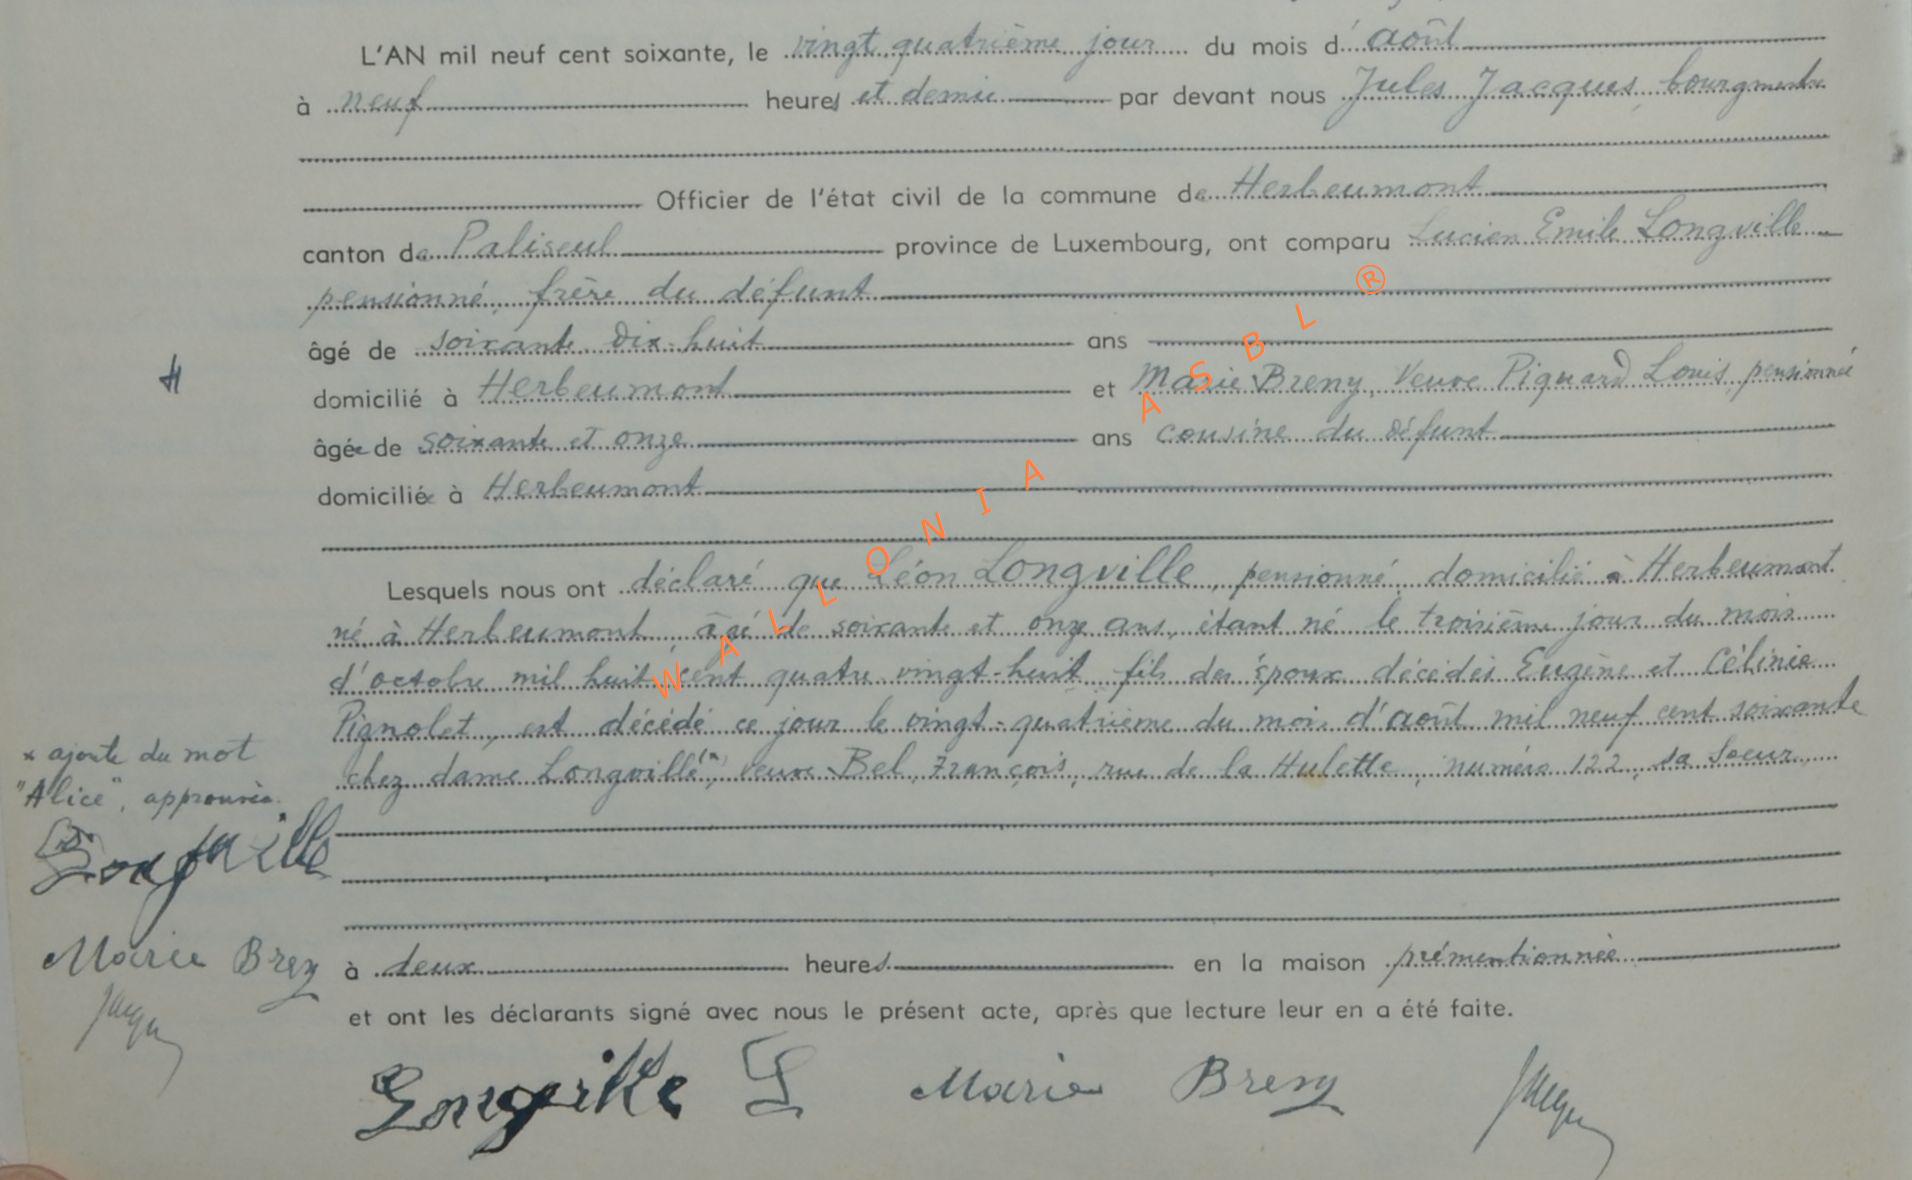 L'AN mil neuf cent soixante, le vingt quatrième jour du mois d'août
à neuf heures et demie par devant nous Jules Jacques, bourgmestre
Officier de l'état civil de la commune de Herbeumont
canton de Paliseul province de Luxembourg, ont comparu Lucien Emile Longville
pensionné, frère du défunt
âgé de soixante dix-huit ans
domicilié à Herbeumont et Marie Breny, Veuve Pignard Louis, pensionnée
âgée de soixante et onze ans cousine du défunt
domiciliée à Herbeumont
Lesquels nous ont déclaré que Léon Longville, pensionné, domicilié à Herbeumont
né à Herbeumont âgé de soixante et onze ans, étant né le troisième jour du mois
d'octobre mil huit cent quatre vingt-huit fils des époux décédés Eugène et Célinie
Pignolet, est décédé ce jour le vingt-quatrième du mois d'août mil neuf cent soixante
chez dame Longville (x) Veuve Bel, François, rue de la Hulette, numéro 122, sa soeur
x ajoute du mot
"Alice", approuvée.
Longville
Marie Breny
Jacques
à deux heures en la maison prémentionnée
et ont les déclarants signé avec nous le présent acte, après que lecture leur en a été faite.
Longville L Marie Breny Jacques
WALLONIA ASBL ®